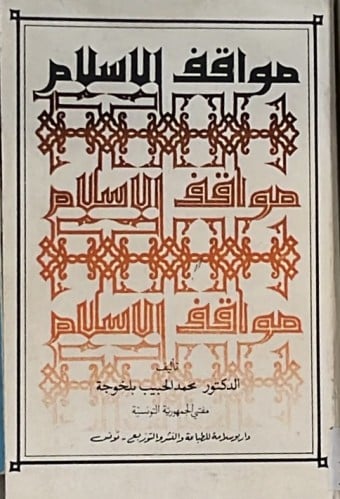 مواقف الإسلام
مواقف الإسلام
مواقف الإسلام
تأليف
الدكتور محمد الحبيب بلخوجة
مفتي الجمهورية التونسية
دار بوسلامة للطباعة والنشر والتوزيع - تونس